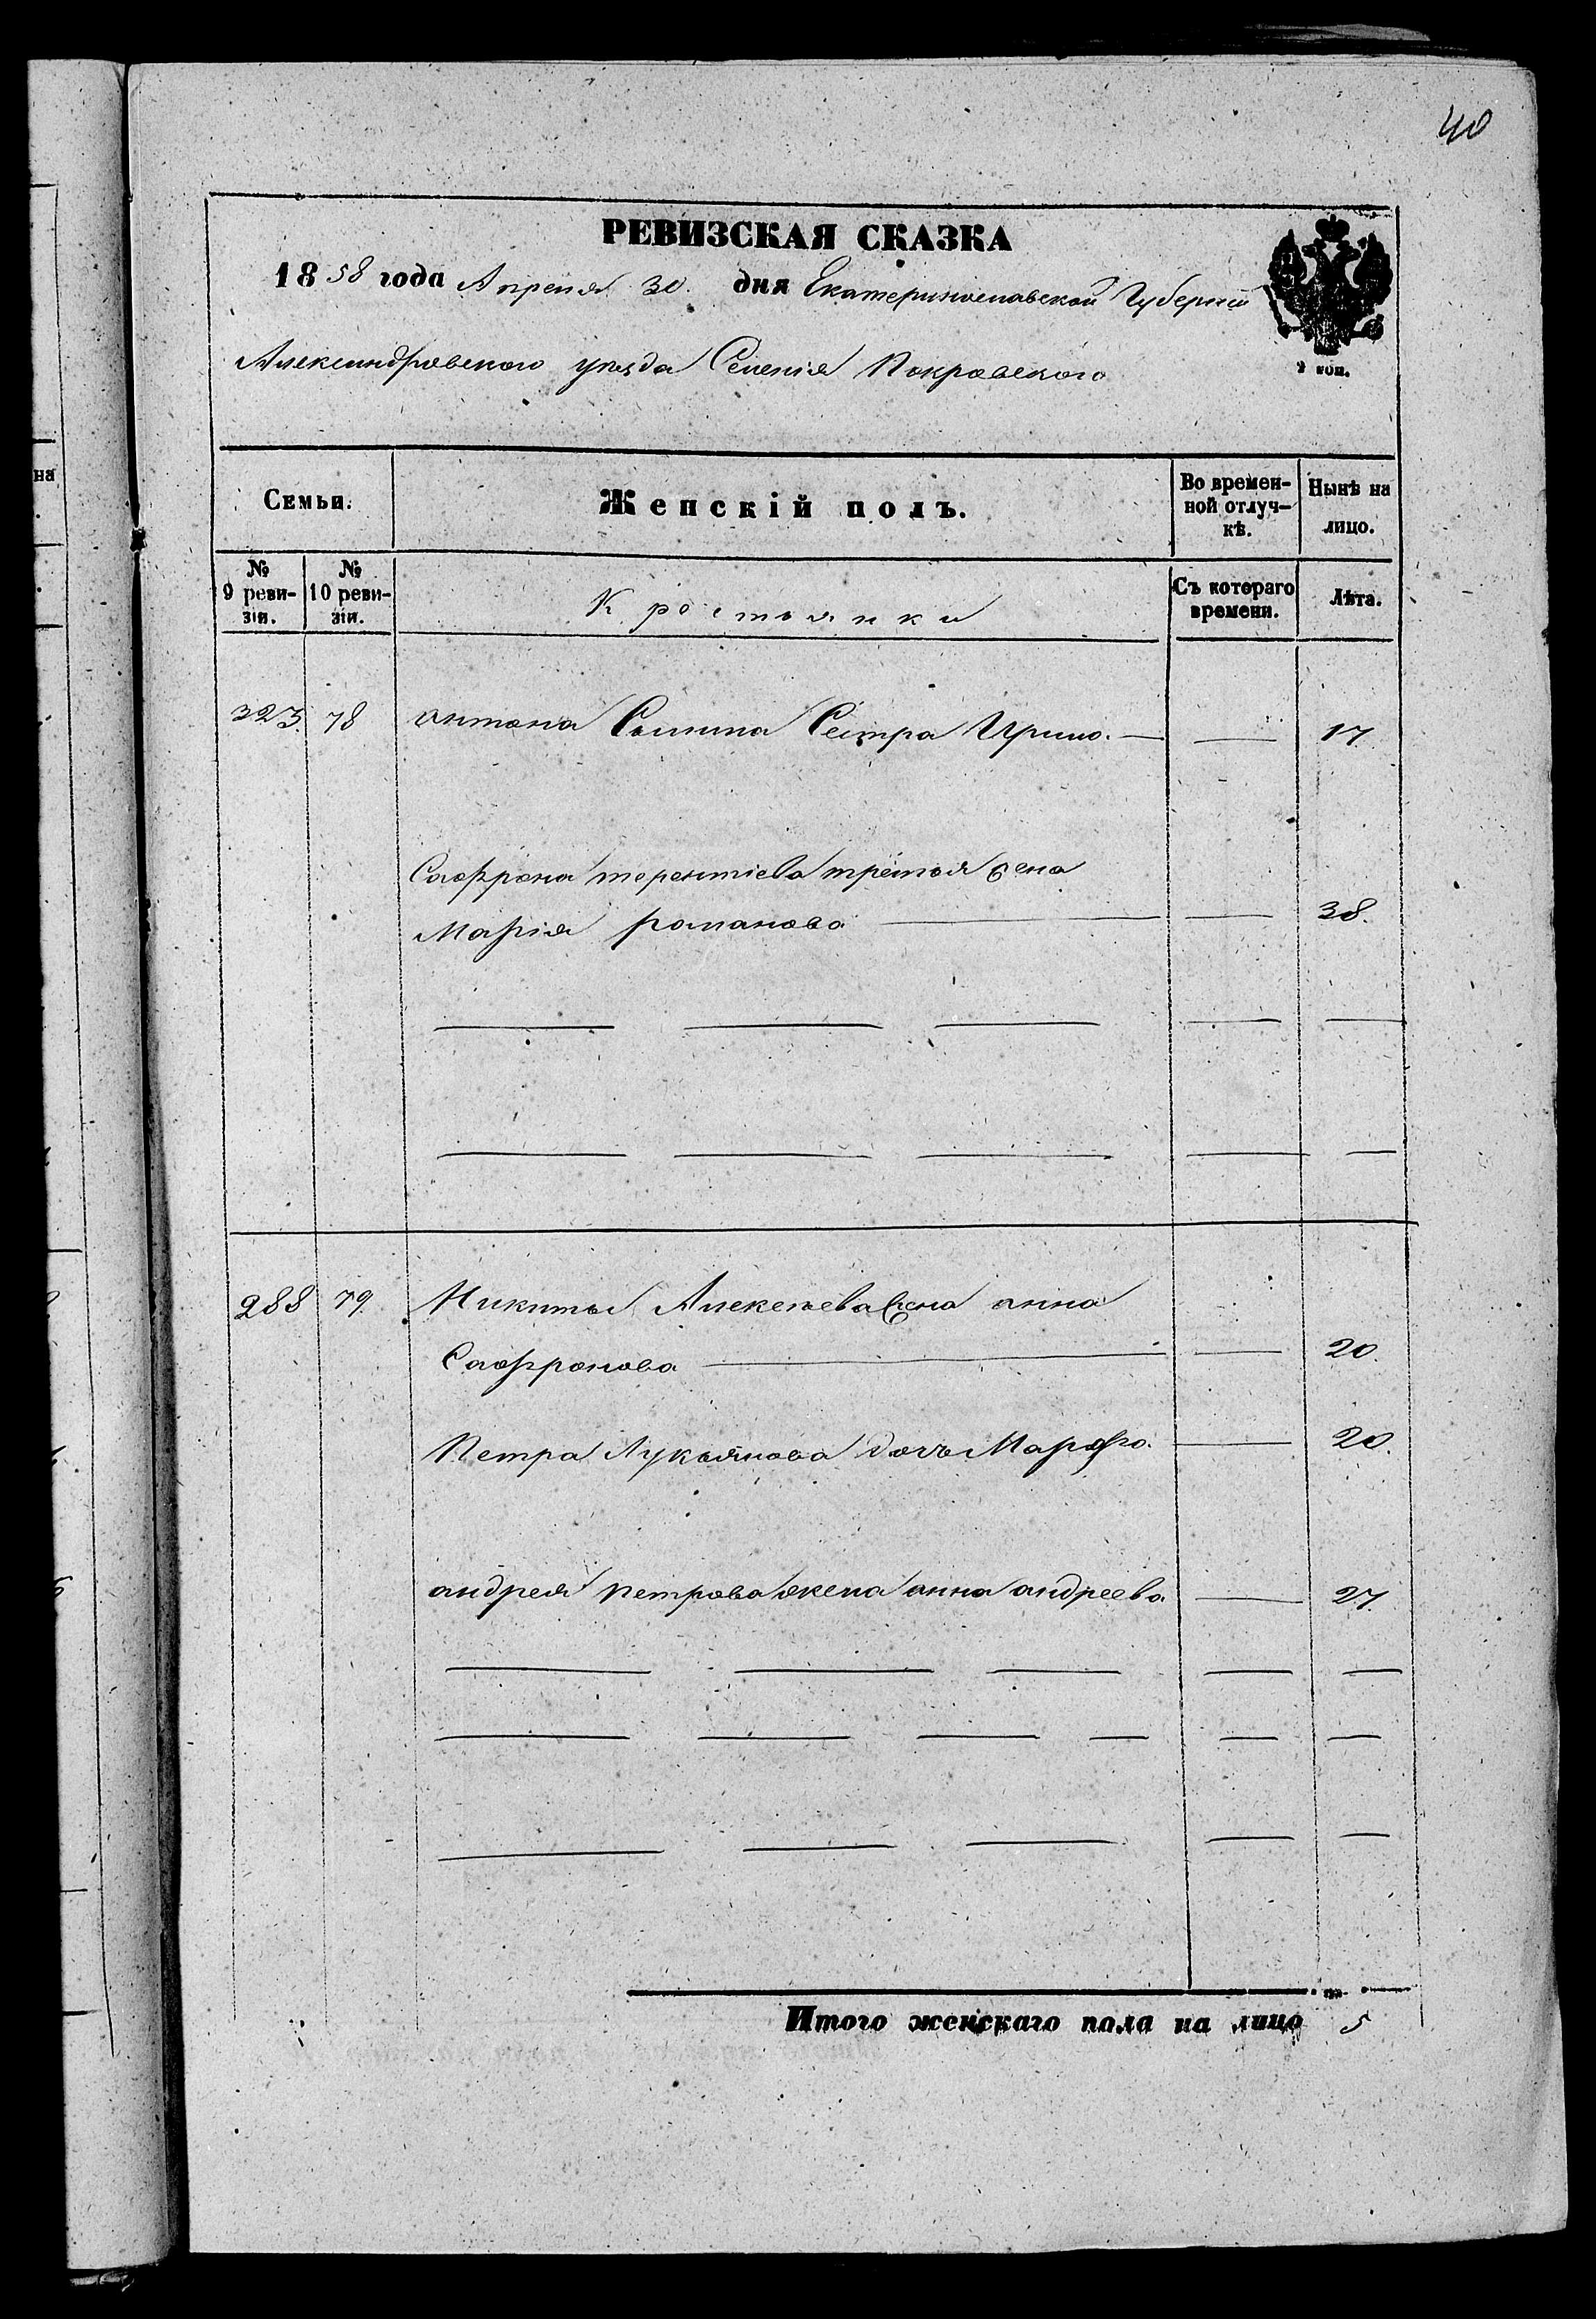 40
РЕВИЗСКАЯ СКАЗКА
1858 года Апреля 30. дня Екатеринославской Губерніи
Александровского уѣзда Селенія Покровского
2 коп.
Семьи. Женскій полъ. Во времен-ной отлуч-кѣ. Нынѣ на лицо.
№ 9 реви-зіи. № 10 реви-зіи. Крестьянки Съ котораго времени. Лѣта.
на
323. 78 антона Сестра Ирина. — — 17
Сафрона терентіева третья жена
Марія романова — — 38.
288 79. Никиты Алексѣева жена анна
Сафронова — — 20.
Петра Лукьянова дочь Марфа. — 20.
андрея петрова жена анна андреева — 27.
Итого женскаго пола на лицо 5